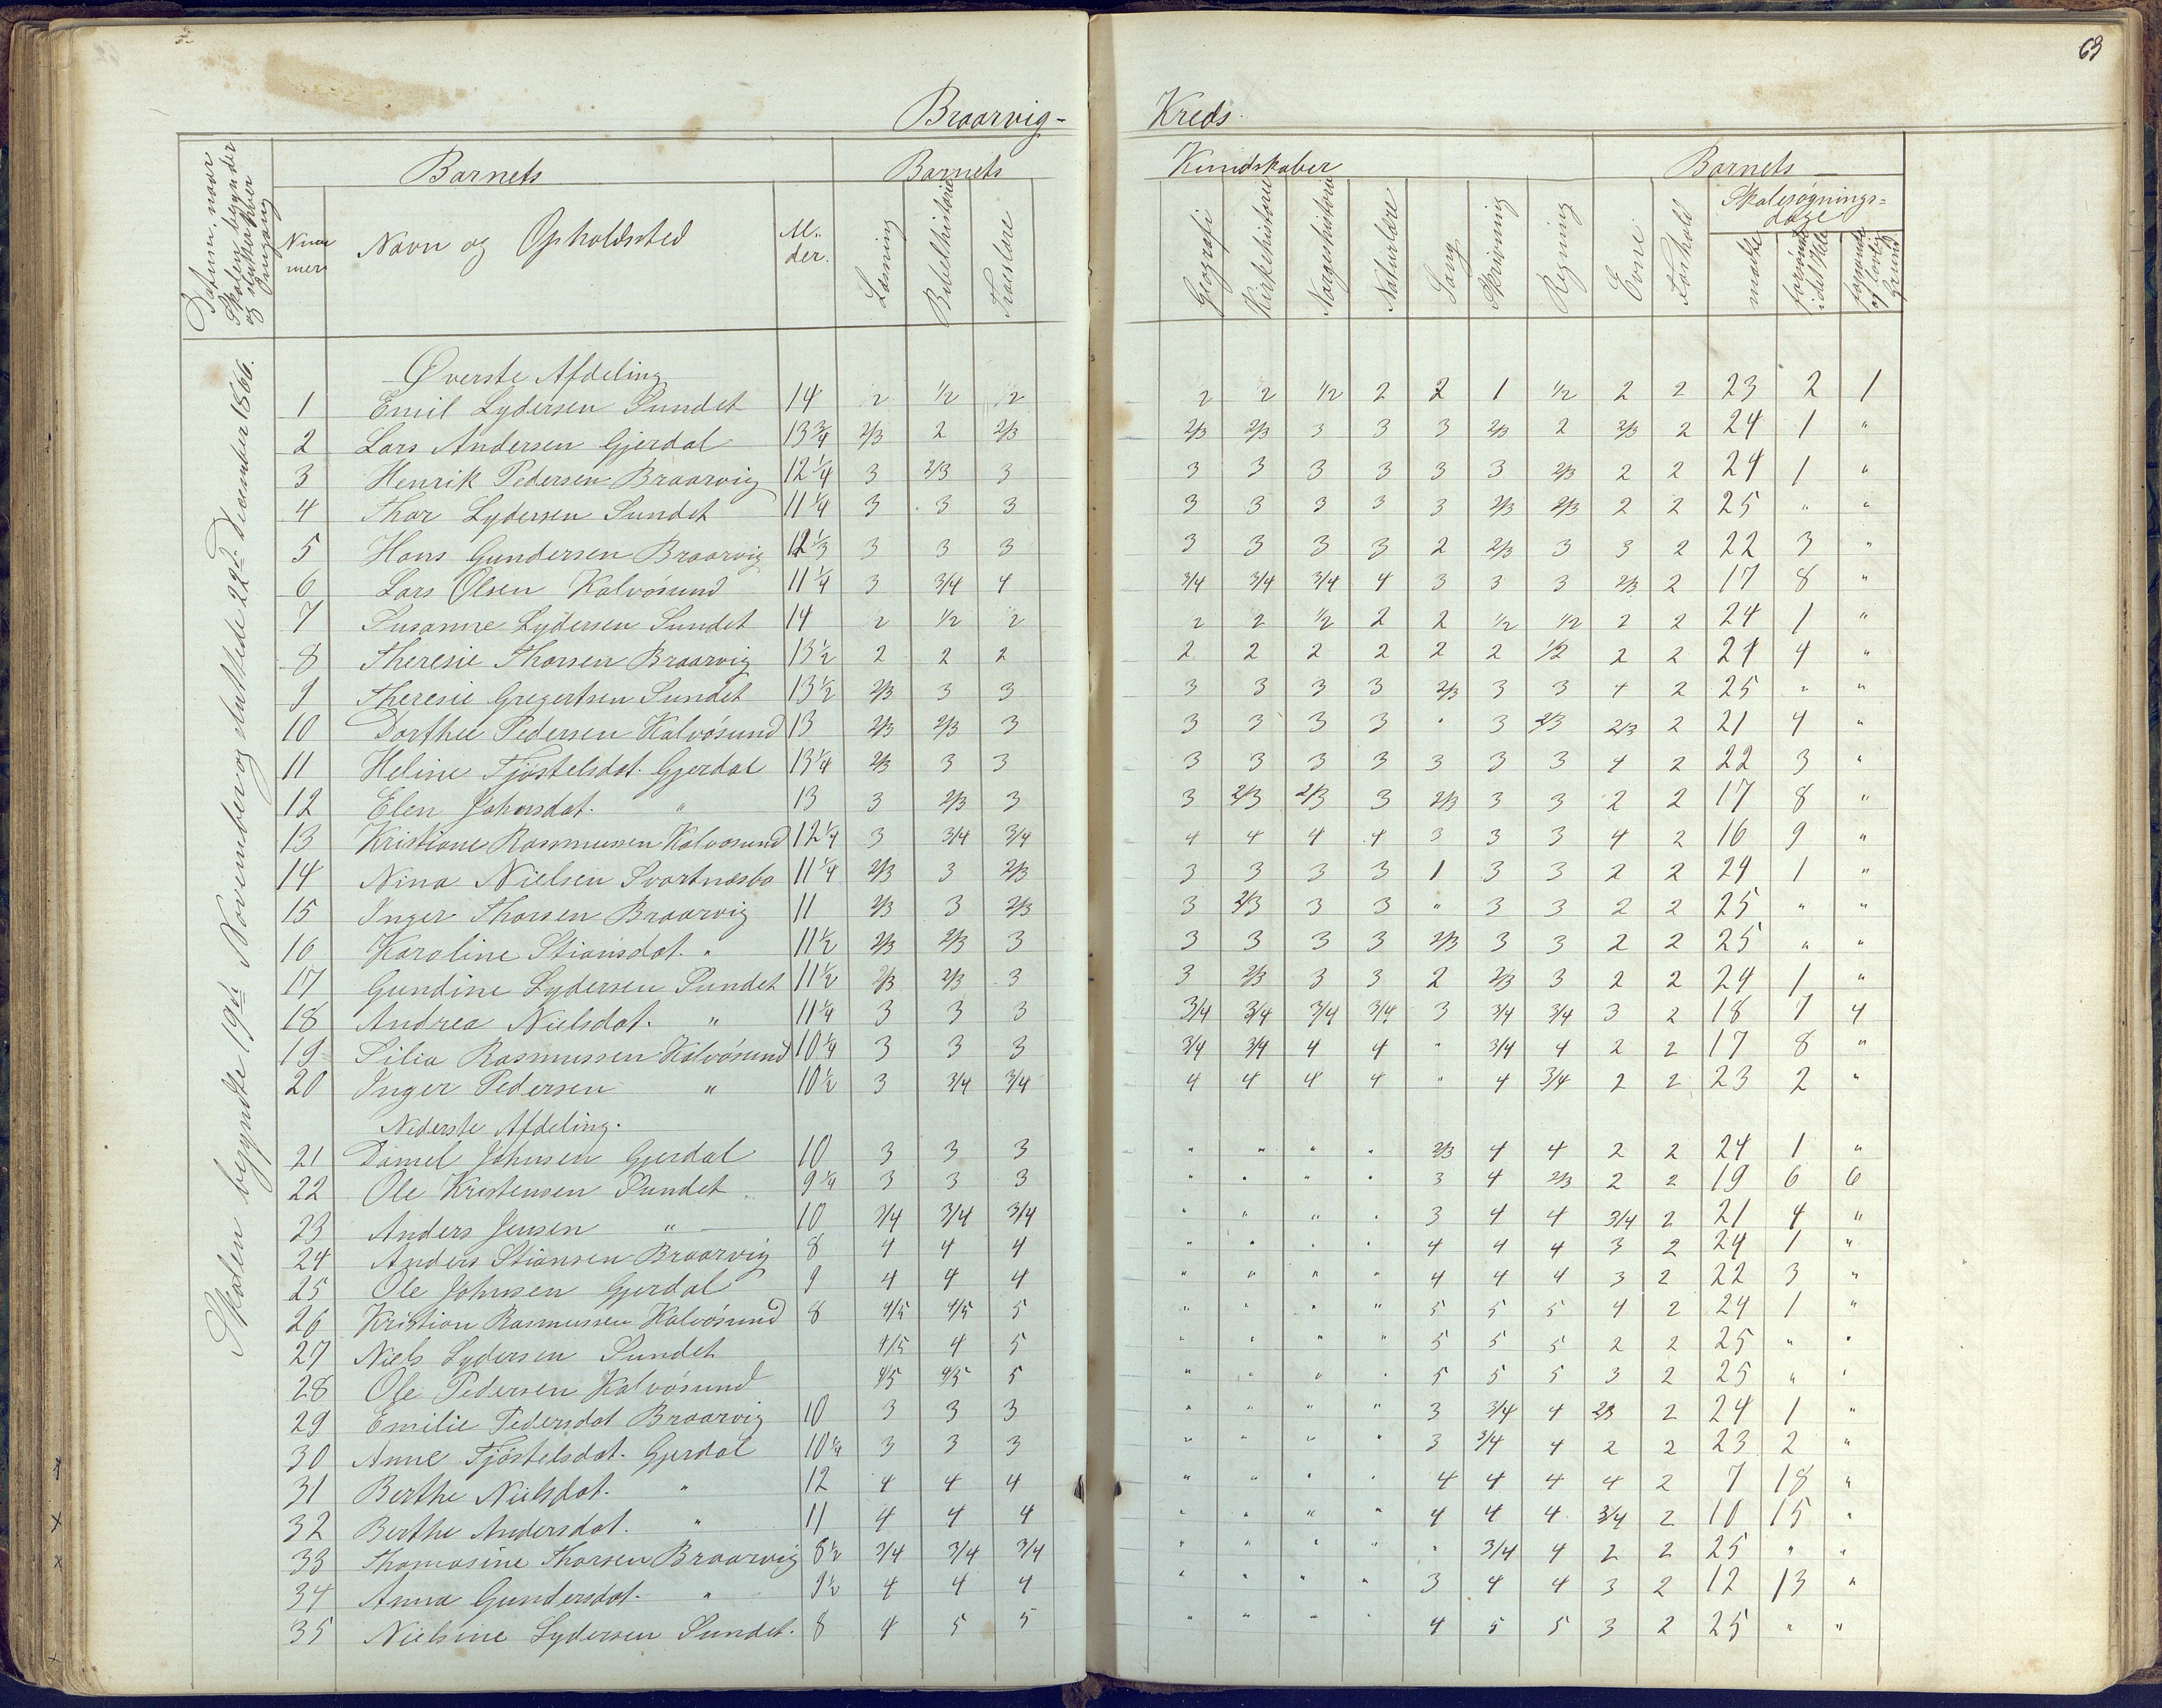 63
Braarvig- Kreds.
Datum, naar Skolen begynder og slutter hver Omgang
Barnets
Barnets Kundskaber
Barnets
Nummer
Navn og Opholdssted
Alder.
Læsning
Bibelhistorie
Troeslære
Geografi
Kirkehistorie
Norgeshistorie
Naturlære
Sang
Skrivning
Regning
Evne
Forhold
Skolesøgnings=dage
mødte
forsømte i det Hele
forsømte af lovlig Grund.
Skolen begyndte 19de November og sluttede 22de December 1866.
Øverste Afdeling
1 Emil Lydersen Sundet 14 2 1/2 2 2 2 1/2 2 2 1 1/2 2 2 23 2 1
2 Lars Andersen Gjerdal 13 3/4 2/3 2 2/3 2/3 2/3 3 3 3 2/3 2 2/3 2 24 1 "
3 Henrik Pedersen Braarvig 12 1/4 3 2/3 3 3 3 3 3 3 3 2/3 2 2 24 1 "
4 Thor Lydersen Sundet 11 1/4 3 3 3 3 3 3 3 3 2/3 2/3 2 2 25 " "
5 Hans Gundersen Braarvig 12 1/3 3 3 3 3 3 3 3 2 2/3 3 3 2 22 3 "
6 Lars Olsen Kalvøsund 11 1/4 3 3/4 4 3/4 3/4 3/4 4 3 3 3 2/3 2 17 8 "
7 Susanne Lydersen Sundet 14 2 1/2 2 2 2 1/2 2 2 1/2 1/2 2 2 24 1 "
8 Theresie Thorsen Braarvig 13 1/2 2 2 2 2 2 2 2 2 2 1/2 2 2 21 4 "
9 Theresie Gregertsen Sundet 13 1/2 2/3 3 3 3 3 3 3 2/3 3 3 4 2 25 " "
10 Dorthee Pedersen Kalvøsund 13 2/3 2/3 3 3 3 3 3 " 3 2/3 2/3 2 21 4 "
11 Heline Tjøstelsdat. Gjerdal 13 1/4 2/3 3 3 3 3 3 3 3 3 3 4 2 22 3 "
12 Elen Johnsdat. " 13 3 2/3 3 3 2/3 2/3 3 2/3 3 3 2 2 17 8 "
13 Kristiane Rasmussen Kalvøsund 12 1/4 3 3/4 3/4 4 4 4 4 3 3 3 4 2 16 9 "
14 Nina Nielsen Svartnæsbo 11 1/4 2/3 3 2/3 3 3 3 3 1 3 3 2 2 24 1 "
15 Inger Thorsen Braarvig 11 2/3 3 2/3 3 2/3 3 3 " 3 3 2 2 25 " "
16 Karoline Stiansdat. " 11 1/2 2/3 2/3 3 3 3 3 3 2/3 3 3 2 2 25 " "
17 Gundine Lydersen Sundet 11 1/2 2/3 2/3 3 3 2/3 3 3 2 2/3 3 2 2 24 1 "
18 Andrea Nielsdat. " 11 1/4 3 3 3 3/4 3/4 3/4 3/4 3 3/4 3/4 3 2 18 7 4
19 Silia Rasmussen Kalvøsund 10 1/4 3 3 3 3/4 3/4 4 4 " 3/4 4 2 2 17 8 "
20 Inger Pedersen " 10 1/2 3 3/4 3/4 4 4 4 4 " 4 3/4 2 2 23 2 "
Nederste Afdeling.
21 Daniel Johnsen Gjerdal 10 3 3 3 " " " " 2/3 4 4 2 2 24 1 "
22 Ole Kristensen Sundet 9 1/4 3 3 3 " " " " 3 4 2/3 2 2 19 6 6
23 Anders Jensen " 10 3/4 3/4 3/4 " " " " 3 4 4 3/4 2 21 4 "
24 Anders Stiansen Braarvig 8 4 4 4 " " " " 4 4 4 3 2 24 1 "
25 Ole Johnsen Gjerdal 9 4 4 4 " " " " 4 4 4 3 2 22 3 "
26 Kristian Rasmussen Kalvøsund 8 4/5 4/5 5 " " " " 5 5 5 4 2 24 1 "
27 Niels Lydersen Sundet 4/5 4 5 " " " " 5 5 5 2 2 25 " "
28 Ole Pedersen Kalvøsund 4/5 4/5 5 " " " " 5 5 5 3 2 25 " "
29 Emilie Pedersdat Braarvig 10 3 3 3 " " " " 3 3/4 4 2/3 2 24 1 "
30 Anne Tjøstelsdat. Gjerdal 10 1/4 3 3 3 " " " " 3 3/4 4 2 2 23 2 "
31 Berthe Nielsdat. " 12 4 4 4 " " " " 4 4 4 4 2 7 18 "
32 Berthe Andersdat. " 11 4 4 4 " " " " 4 4 4 3/4 2 10 15 "
33 Thomasine Thorsen Braarvig 8 1/2 3/4 3/4 3/4 " " " " " 3/4 4 2 2 25 " "
34 Anna Gundersdat. " 9 1/2 4 4 4 " " " " 3 4 4 3 2 12 13 "
35 Nielsine Lydersen Sundet. 8 4 5 5 " " " " 4 5 5 3 2 25 " "